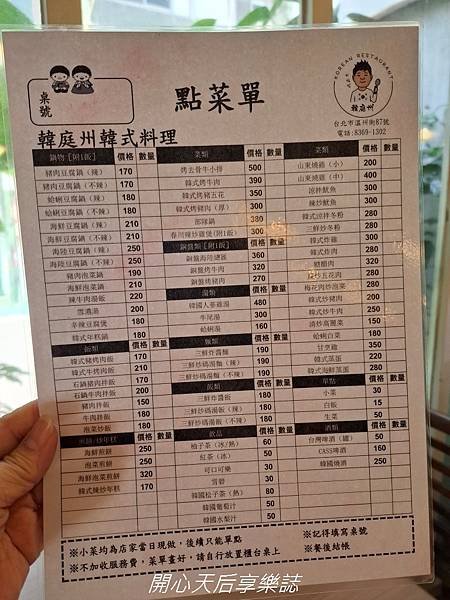 桌號
點菜單
KOREAN RESTAURANT
韓庭州
台北市溫州街87號
電話:8369-1302
韓庭州韓式料理
鍋物〔附1飯〕 價格 數量
豬肉豆腐鍋（辣） 170
豬肉豆腐鍋（不辣） 170
蛤蜊豆腐鍋（辣） 180
蛤蜊豆腐鍋（不辣） 180
海鮮豆腐鍋（辣） 210
海鮮豆腐鍋（不辣） 210
海陸豆腐鍋（辣） 250
海陸豆腐鍋（不辣） 250
豬肉泡菜鍋 190
海鮮泡菜鍋 210
辣牛肉湯飯 220
雪濃湯 200
辛辣豆腐煲 180
韓式年糕鍋 180
飯類 價格 數量
韓式豬烤肉飯 170
韓式牛烤肉飯 210
石鍋豬肉拌飯 170
石鍋牛肉拌飯 200
豬肉拌飯 150
牛肉拌飯 180
泡菜炒飯 180
煎餅/炒年糕 價格 數量
海鮮煎餅 250
泡菜煎餅 250
海鮮泡菜煎餅 320
韓式辣炒年糕 170
菜類 價格 數量
烤去骨牛小排 500
韓式烤牛肉 390
韓式烤豬五花 350
韓式烤豬肉（厚） 300
部隊鍋 380
春川辣炒雞煲（附1飯） 300
銅盤類〔附1飯〕 價格 數量
銅盤海陸總匯 360
銅盤烤牛肉 320
銅盤烤豬肉 280
湯類 價格 數量
韓國人蔘雞湯 480
牛尾湯 300
蛤蜊湯 160
麵類 價格 數量
三鮮炸醬麵 190
三鮮炒碼湯麵（辣） 190
三鮮炒碼湯麵（不辣） 190
飯類 價格 數量
三鮮炸醬飯 180
三鮮炒碼湯飯（辣） 180
三鮮炒碼湯飯（不辣） 180
飲品 價格 數量
柚子茶（冰/熱） 60
紅茶（冰） 50
可口可樂 30
雪碧 30
韓國松子茶（熱） 80
韓國葡萄汁 50
韓國水梨汁 50
菜類 價格 數量
山東燒雞（小） 200
山東燒雞（中） 400
涼拌魷魚 350
辣炒魷魚 350
韓式涼拌冬粉 280
三鮮炒冬粉 280
韓式炸雞 350
韓式炸肉 280
糖醋肉 320
辣炒五花肉 280
梅花肉炒泡菜 280
韓式炒豬肉 210
韓式炒牛肉 250
清炒高麗菜 150
蛤蜊白菜 180
甘空雞 350
韓式蒸蛋 220
韓式海鮮蒸蛋 280
單點 價格 數量
小菜 30
白飯 15
生菜 50
酒類 價格 數量
台灣啤酒（罐） 50
CASS啤酒 160
韓國燒酒 250
※小菜均為店家當日現做，後續只能單點
※不加收服務費，菜單畫好，請自行放置櫃台桌上
※記得填寫桌號
※餐後結帳
開心天后享樂誌